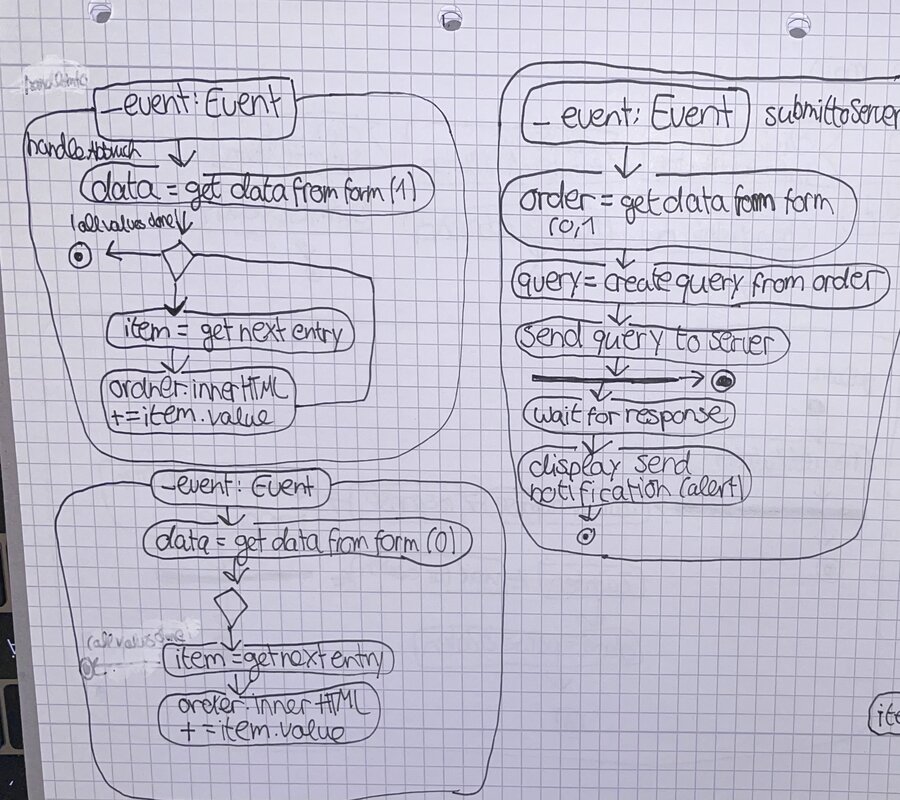 _event: Event
handleAbbruch
data = get data from form (1)
[all values done]
item = get next entry
ordner.innerHTML
+=item.value
_event: Event
data = get data from form (0)
item = get next entry
order.innerHTML
+=item.value
_ event: Event
submittoServer
order = get data from form
(0,1
query = create query from order
send query to server
wait for response
display send
notification (alert)
ite